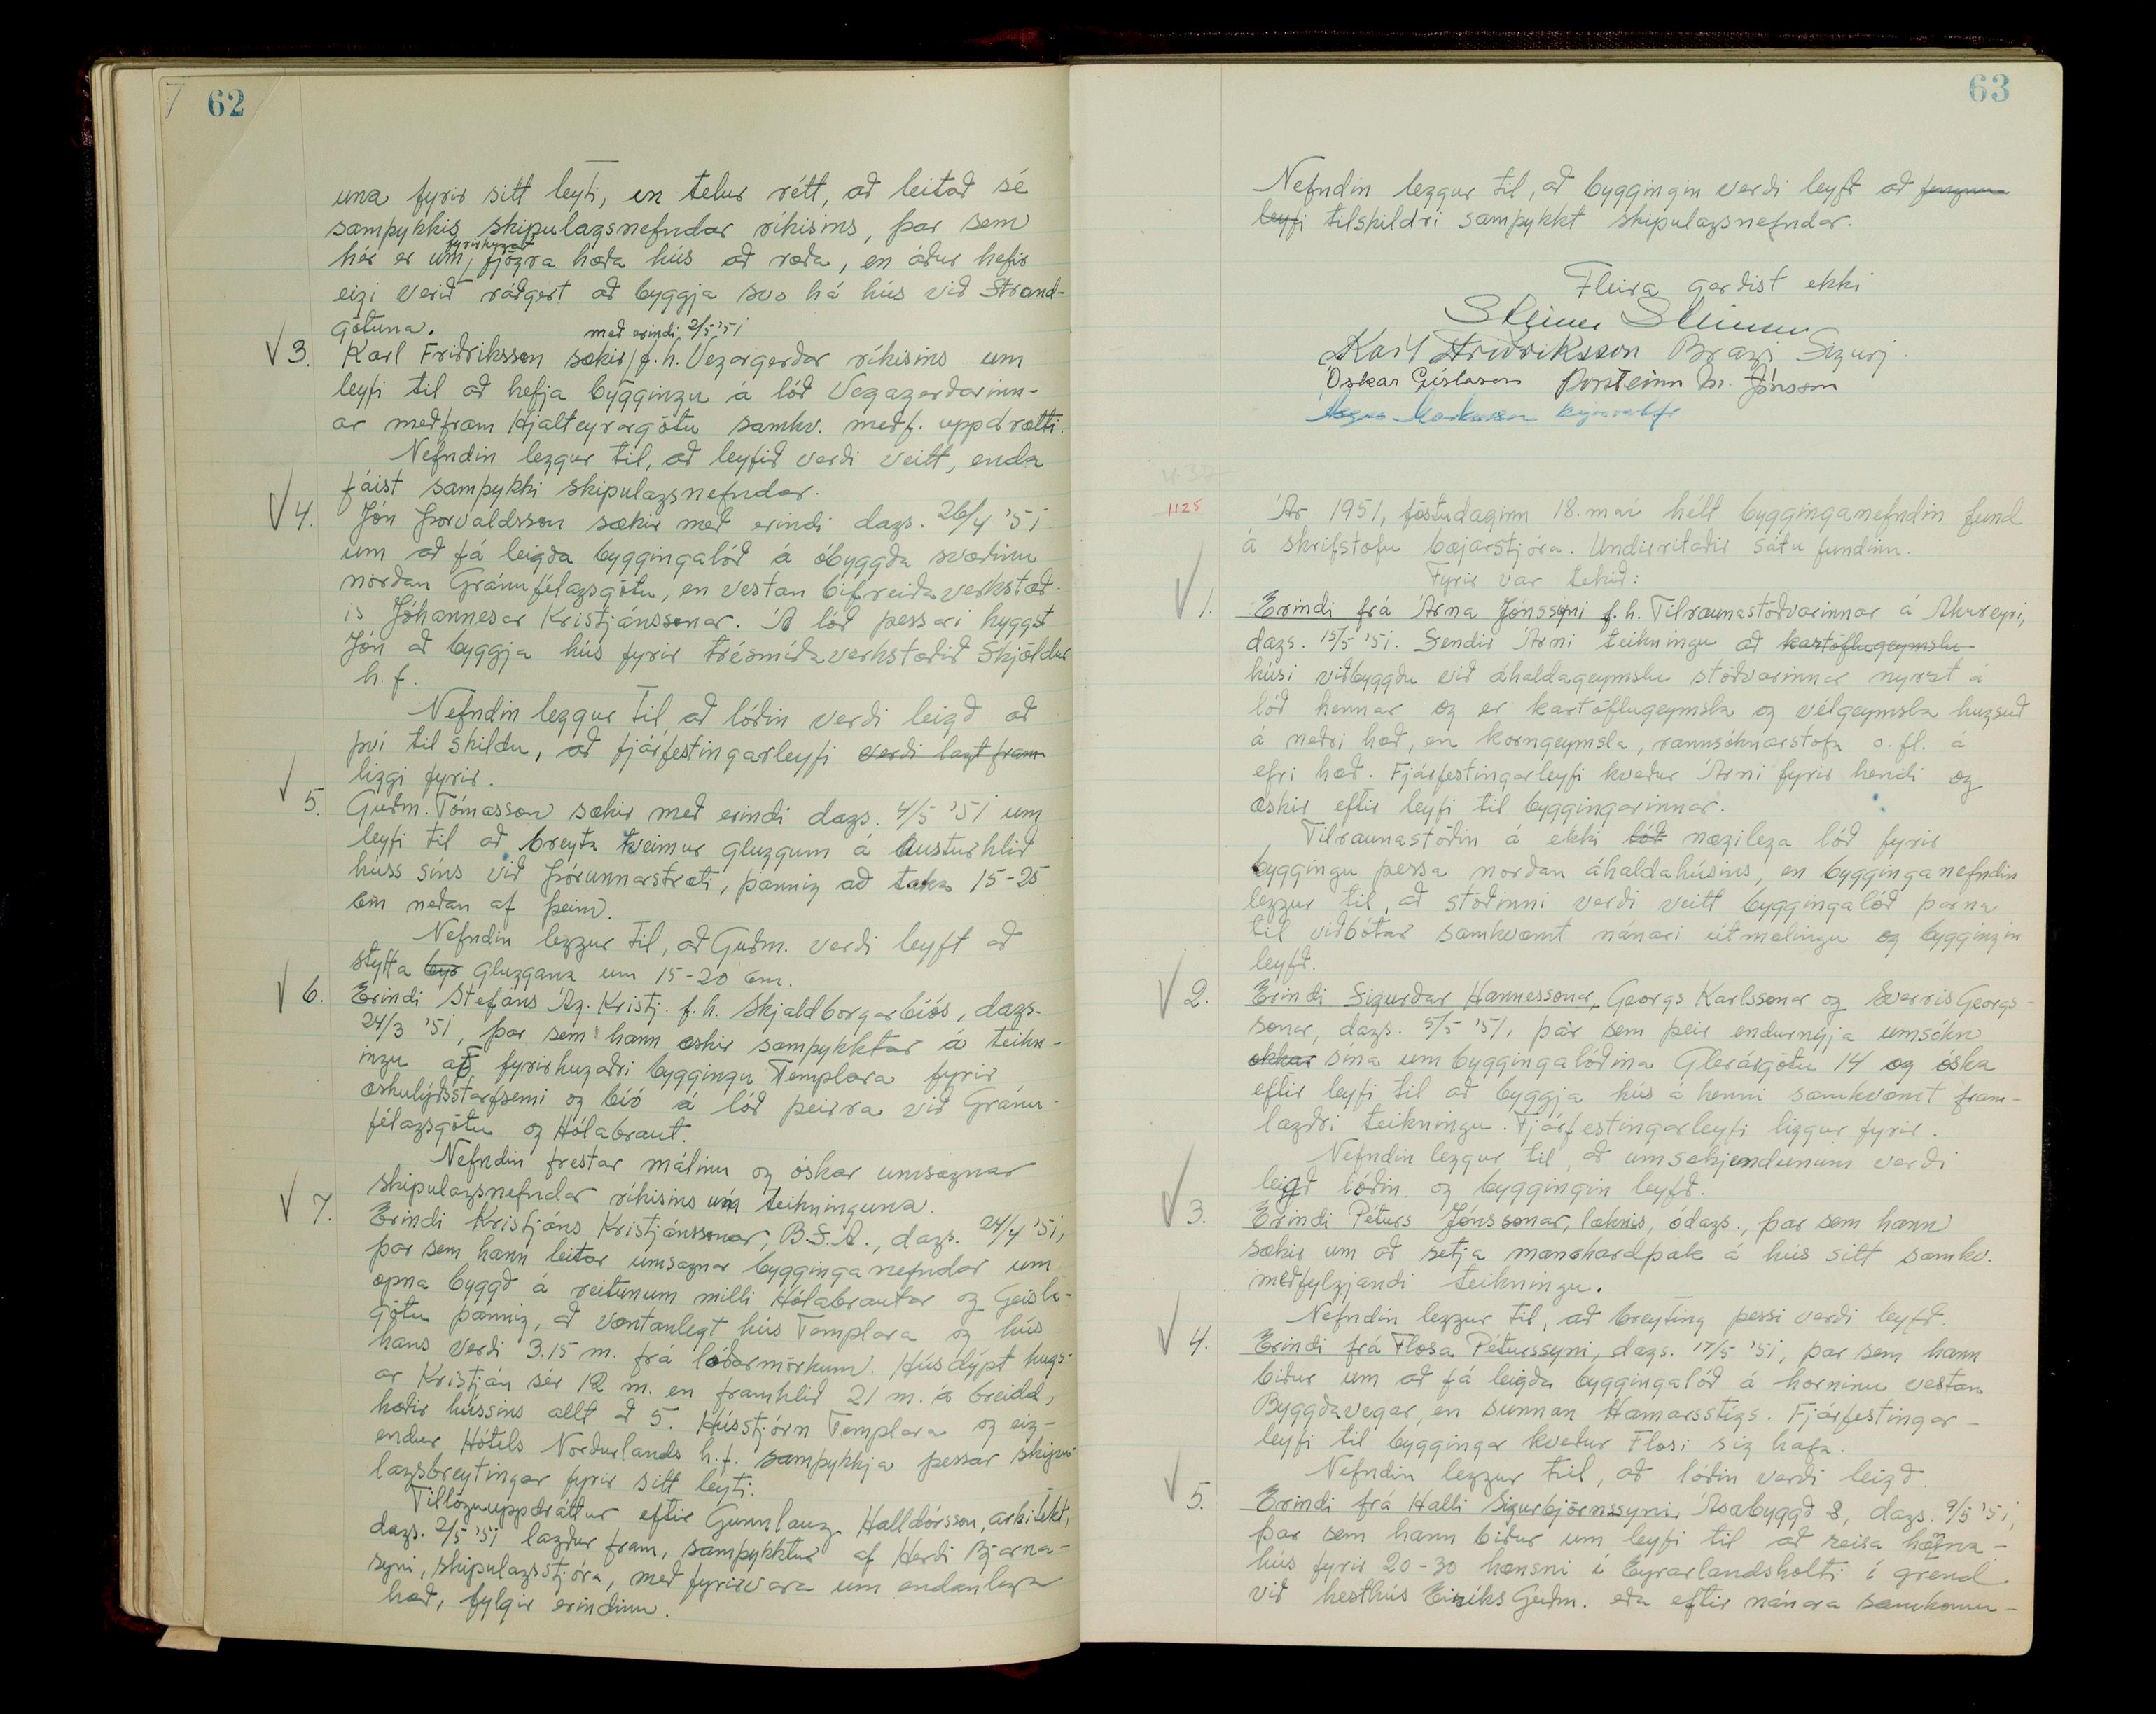 62
una fyrir sitt leyti, en telur rétt, að leitað sé
samþykkis skipulagsnefndar ríkisins, þar sem
fyrirhugað
hér er um fjögra hæða hús að ræða, en áður hefir
eigi verið ráðgert að byggja svo há hús við Strand-
götuna.
með erindi 2/5 '51
3. Karl Friðriksson sækir f.h. Vegagerðar ríkisins um
leyfi til að hefja byggingu á lóð Vegagerðarinn-
ar meðfram Hjalteyrargötu samkv. meðf. uppdrætti.
Nefndin leggur til, að leyfið verði veitt, enda
fáist samþykki skipulagsnefndar.
4. Jón Þorvaldsson sækir með erindi dags. 26/4 '51
um að fá leigða byggingalóð á óbyggða svæðinu
norðan Gránufélagsgötu, en vestan bifreiðaverkstæð-
is Jóhannesar Kristjánssonar. Á lóð þessari hyggst
Jón að byggja hús fyrir trésmíðaverkstæðið Skjöldur
h.f.
Nefndin leggur til að lóðin verði leigð að
því tilskildu, að fjárfestingarleyfi verði lagt fram
liggi fyrir.
5. Guðm. Tómasson sækir með erindi dags. 4/5 '51 um
leyfi til að breyta tveimur gluggum á austurhlið
húss síns við Þórunnarstræti, þannig að taka 15-25
cm neðan af þeim.
Nefndin leggur til, að Guðm. verði leyft að
stytta gluggana um 15-20 cm.
6. Erindi Stefáns Ág. Kristj. f.h. Skjaldborgarbíós, dags.
24/3 '51, þar sem hann æskir samþykktar á teikn-
ingu að fyrirhugaðri byggingu Templara fyrir
æskulýðsstarfsemi og bíó á lóð þeirra við Gránu-
félagsgötu og Hólabraut.
Nefndin frestar málinu og óskar umsagnar
skipulagsnefndar ríkisins um teikninguna.
7. Erindi Kristjáns Kristjánssonar, B.S.A., dags. 24/4 '51,
þar sem hann leitar umsagnar bygginganefndar um
opna byggð á reitunum milli Hólabrautar og Geisla-
götu þannig, að væntanlegt hús Templara og hús
hans verði 3.15 m. frá lóðarmörkum. Húsdýpt hugs-
ar Kristján sér 12 m. en framhlið 21 m. á breidd,
hæðir hússins allt að 5. Hússtjórn Templara og eig-
endur Hótels Norðurlands h.f. samþykkja þessar skipu-
lagsbreytingar fyrir sitt leyti.
Tillöguuppdráttur eftir Gunnlaug Halldórsson, arkitekt,
dags. 2/5 '51 lagður fram, samþykktur af Herði Bjarna-
syni, skipulagsstjóra, með fyrirvara um endanlega
hæð, fylgir erindinu.
63
Nefndin leggur til, að byggingin verði leyfð að fengnu
leyfi tilskildri samþykkt skipulagsnefndar.
Fleira gerðist ekki
Steinn Steinsen
Karl Friðriksson Bragi Sigurj.
Óskar Gíslason Þorsteinn M. Jónsson
1125
Ár 1951, föstudaginn 18. maí hélt bygginganefndin fund
á skrifstofu bæjarstjóra. Undirritaðir sátu fundinn.
Fyrir var tekið:
1. Erindi frá Árna Jónssyni f.h. Tilraunastöðvarinnar á Akureyri,
dags. 15/5 '51. Sendir Árni teikningu að kartöflugeymslu
húsi viðbyggðu við áhaldageymslu stöðvarinnar nyrzt á
lóð hennar og er kartöflugeymsla og vélgeymsla hugsuð
á neðri hæð, en korngeymsla, rannsóknarstofa o.fl. á
efri hæð. Fjárfestingarleyfi kveður Árni fyrir hendi og
æskir eftir leyfi til byggingarinnar.
Tilraunastöðin á ekki lóð nægilega lóð fyrir
byggingu þessa norðan áhaldahúsins, en bygginganefndin
leggur til, að stöðinni verði veitt byggingalóð þarna
til viðbótar samkvæmt nánari útmælingu og byggingin
leyfð.
2. Erindi Sigurðar Hannessonar, Georgs Karlssonar og Sverris Georgs-
sonar, dags. 5/5 '51, þar sem þeir endurnýja umsókn
okkar sína um byggingalóðina Glerárgötu 14 og óska
eftir leyfi til að byggja hús á henni samkvæmt fram-
lagðri teikningu. Fjárfestingarleyfi liggur fyrir.
Nefndin leggur til, að umsækjendunum verði
leigð lóðin og byggingin leyfð.
3. Erindi Péturs Jónssonar, læknis, ódags., þar sem hann
sækir um að setja mansardþak á hús sitt samkv.
meðfylgjandi teikningu.
Nefndin leggur til, að breyting þessi verði leyfð.
4. Erindi frá Flosa Péturssyni, dags. 17/5 '51, þar sem hann
biður um að fá leigða byggingalóð á horninu vestan
Byggðavegar, en sunnan Hamarsstígs. Fjárfestingar-
leyfi til byggingar kveður Flosi sig hafa.
Nefndin leggur til, að lóðin verði leigð.
5. Erindi frá Halli Sigurbjörnssyni Ásabyggð 8, dags. 9/5 '51,
þar sem hann biður um leyfi til að reisa hæsna-
hús fyrir 20-30 hænsni í Eyrarlandsholti í grend
við hesthús Eiríks Guðm. eða eftir nánara samkomu-